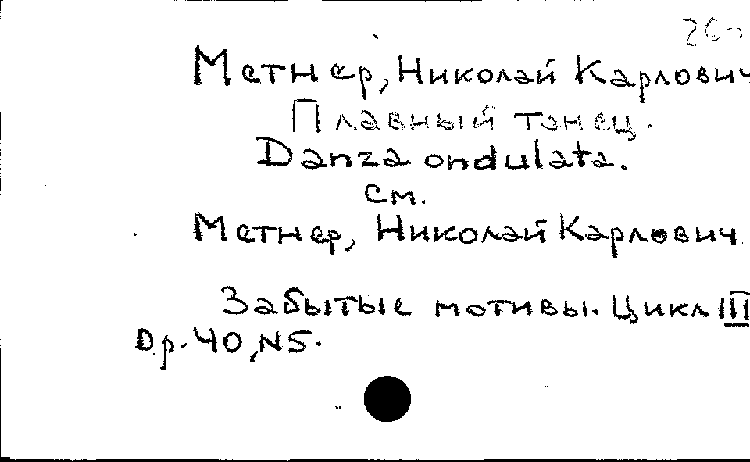 Метнер, Николай Карлович
Плавный танец.
Danza ondulata.
см.
Метнер, Николай Карлович
Забытые мотивы. Цикл III
Op. 40, N5.